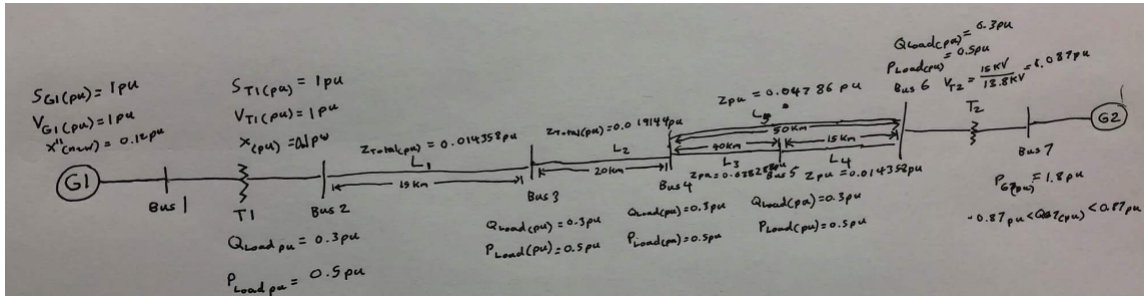 S G1(pu) = 1pu
V G1(pu) = 1pu
x"(new) = 0.12pu
G1
Bus 1
S T1(pu) = 1pu
V T1(pu) = 1pu
x(pu) = 0.1pu
T1
Bus 2
Q Load pu = 0.3pu
P Load pu = 0.5pu
Z Total(pu) = 0.014358pu
L1
15km
Bus 3
Q Load(pu) = 0.3pu
P Load(pu) = 0.5pu
Z Total(pu) = 0.019144pu
L2
20km
Bus 4
Q Load(pu) = 0.3pu
P Load(pu) = 0.5pu
Zpu = 0.04786 pu
L5
50km
40km
L3
Zpu = 0.038288pu
Bus 5
15km
L4
Zpu = 0.014358pu
Q Load(pu) = 0.3pu
P Load(pu) = 0.5pu
Q Load(pu) = 0.3pu
P Load(pu) = 0.5pu
Bus 6
V T2 = 15KV / 13.8KV = 1.087pu
T2
Bus 7
G2
P G2(pu) = 1.8pu
-0.87pu < Q G2(pu) < 0.87pu